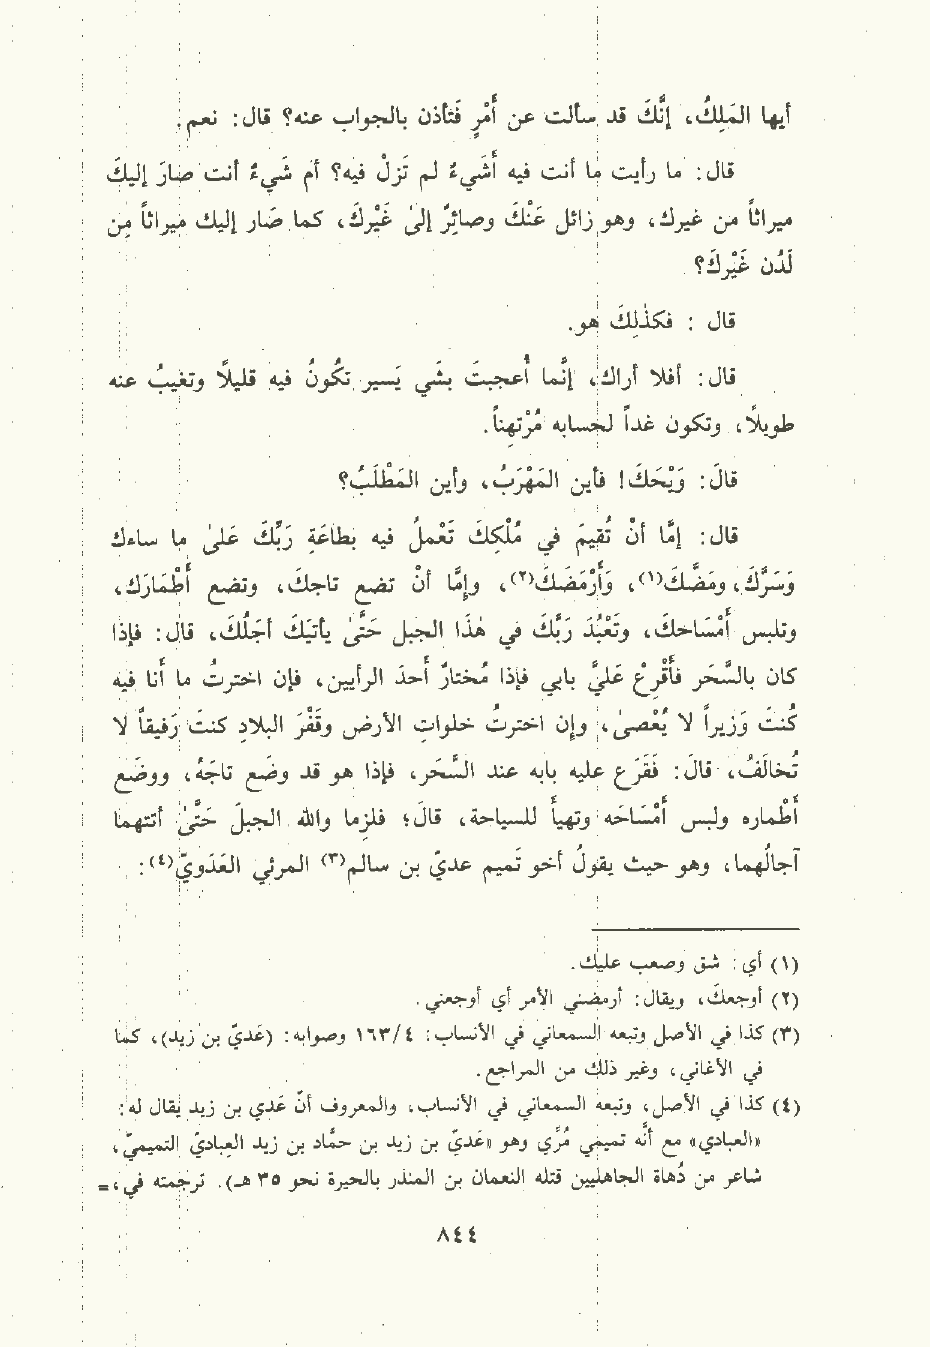 أيها المَلِكُ، إنَّكَ قد سألت عن أَمْرٍ فَتأذن بالجواب عنه؟ قال: نعم.
قال: ما رأيت ما أنت فيه أَشَيءٌ لم تَزلْ فيه؟ أم شَيءٌ أنت صارَ إليكَ
ميراثاً من غيرك، وهو زائل عَنْكَ وصائِرٌ إلى غَيْرِكَ، كما صَار إليك ميراثاً مِن
لَدُن غَيْرِكَ؟
قال : فكذلِكَ هو.
قال: أفلا أراك، إنَّما أُعجبتَ بشَيٍ يَسير تكُونُ فيه قليلاً وتغيبُ عنه
طويلاً، وتكون غداً لحسابه مُرْتهِناً.
قالَ: وَيْحَكَ! فأين المَهْرَبُ، وأين المَطْلَبُ؟
قال: إمَّا أنْ تُقِيمَ في مُلْكِكَ تَعْمَلُ فيه بطاعَةِ رَبِّكَ عَلى ما ساءك
وَسَرَّكَ، ومَضَّكَ(١)، وَأَرْمَضَكَ(٢)، وإمَّا أنْ تضع تاجكَ، وتضع أطْمَارَك،
وتلبس أمْسَاحكَ، وتَعْبُدَ رَبِّكَ في هَذا الجبل حَتَّى يأتيَكَ أجَلُكَ، قال: فإذا
كان بالسَّحَرِ فأقْرِعْ عليَّ بابي فإذا مُختارٌ أحَدَ الرأيين، فإن اخترتُ ما أنا فيه
كُنتَ وَزيراً لا يُعْصى، وإن اخترتُ خلوات الأرض وقَفْرَ البلادِ كنتَ رَفيقاً لا
تُخالَفُ، قالَ: فَقَرَعَ عليه بابه عند السَّحَرِ، فإذا هو قد وضَع تاجَهُ، ووضَع
أطماره ولبس أمْسَاحَه وتهيأ للسياحة، قالَ؛ فلزِما والله الجبلَ حَتَّى أتتهما
آجالُهما، وهو حيث يقولُ أخو تَميم عديّ بن سالم(٣) المرئي العَدَويّ(٤):
(١) أي: شق وصعب عليك.
(٢) أوجعكَ، ويقال: أرمضني الأمر أي أوجعني.
(٣) كذا في الأصل وتبعه السمعاني في الأنساب: ١٦٣/٤ وصوابه: (عَديّ بن زيد)، كما
في الأغاني، وغير ذلك من المراجع.
(٤) كذا في الأصل، وتبعه السمعاني في الأنساب، والمعروف أنّ عَدي بن زيد يقال له:
«العبادي» مع أنّه تميمي مُرّي وهو «عَديّ بن زيد بن حمّاد بن زيد العباديّ التميميّ،
شاعر من دُهاة الجاهليين قتله النعمان بن المنذر بالحيرة نحو ٣٥ هـ). ترجمته في،=
٨٤٤